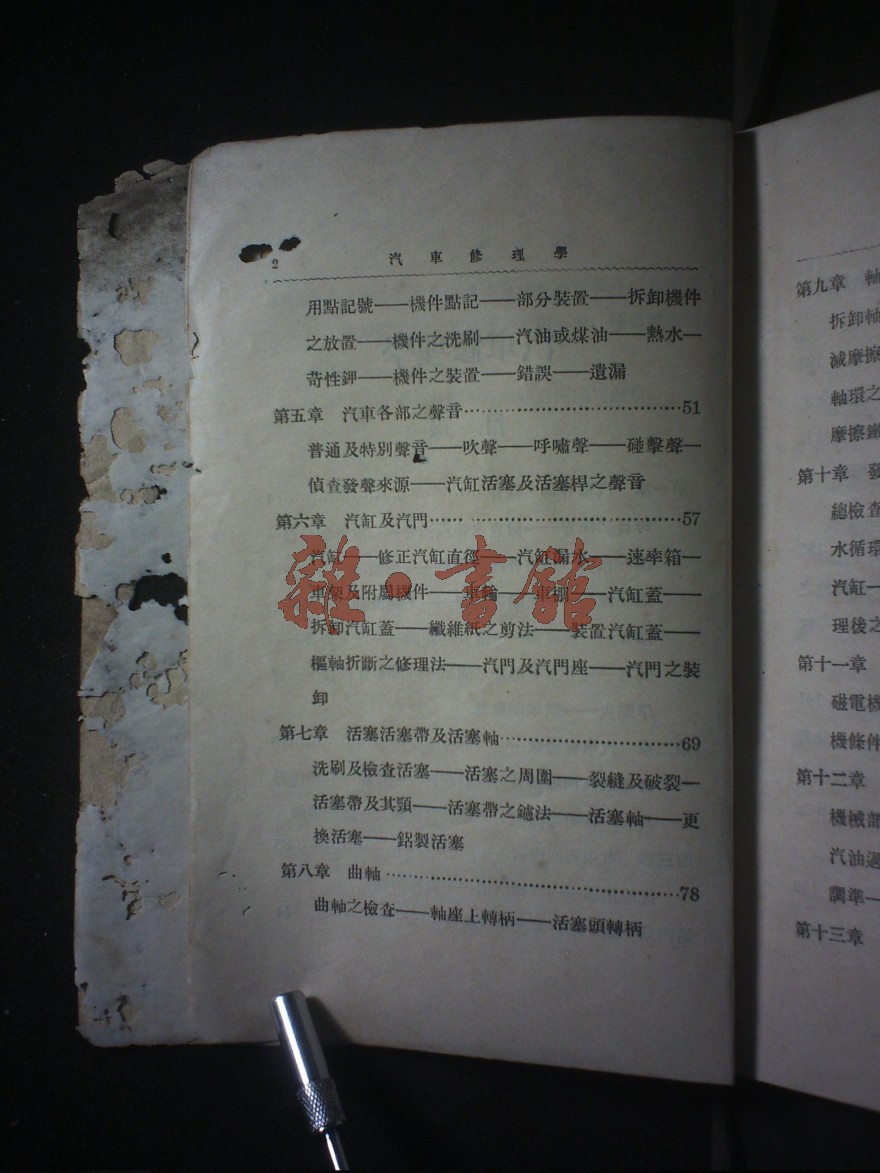 2
汽車修理學
用點記號——機件點記——部分裝置——拆卸機件
之放置——機件之洗刷——汽油或煤油——熱水—
苛性鉀——機件之裝置——錯誤——遺漏
第五章 汽車各部之聲音……………………51
普通及特別聲音——吹聲——呼嘯聲——碰擊聲—
偵查發聲來源——汽缸活塞及活塞桿之聲音
第六章 汽缸及汽門……………………57
汽缸——修正汽缸直徑——汽缸漏水——速率箱—
車架及附屬機件——車輪——車棚——汽缸蓋——
拆卸汽缸蓋——纖維紙之剪法——裝置汽缸蓋——
樞軸折斷之修理法——汽門及汽門座——汽門之裝
卸
第七章 活塞活塞帶及活塞軸……………………69
洗刷及檢查活塞——活塞之周圍——裂縫及破裂—
活塞帶及其頸——活塞帶之鑢法——活塞軸——更
換活塞——鋁製活塞
第八章 曲軸……………………78
曲軸之檢查——軸座上轉柄——活塞頭轉柄
雜·書館
第九章 軸
拆卸軸
減摩擦
軸環之
摩擦
第十章 發
總檢查
水循環
汽缸—
理後之
第十一章
磁電機
機條件
第十二章
機械部
汽油過
調準—
第十三章